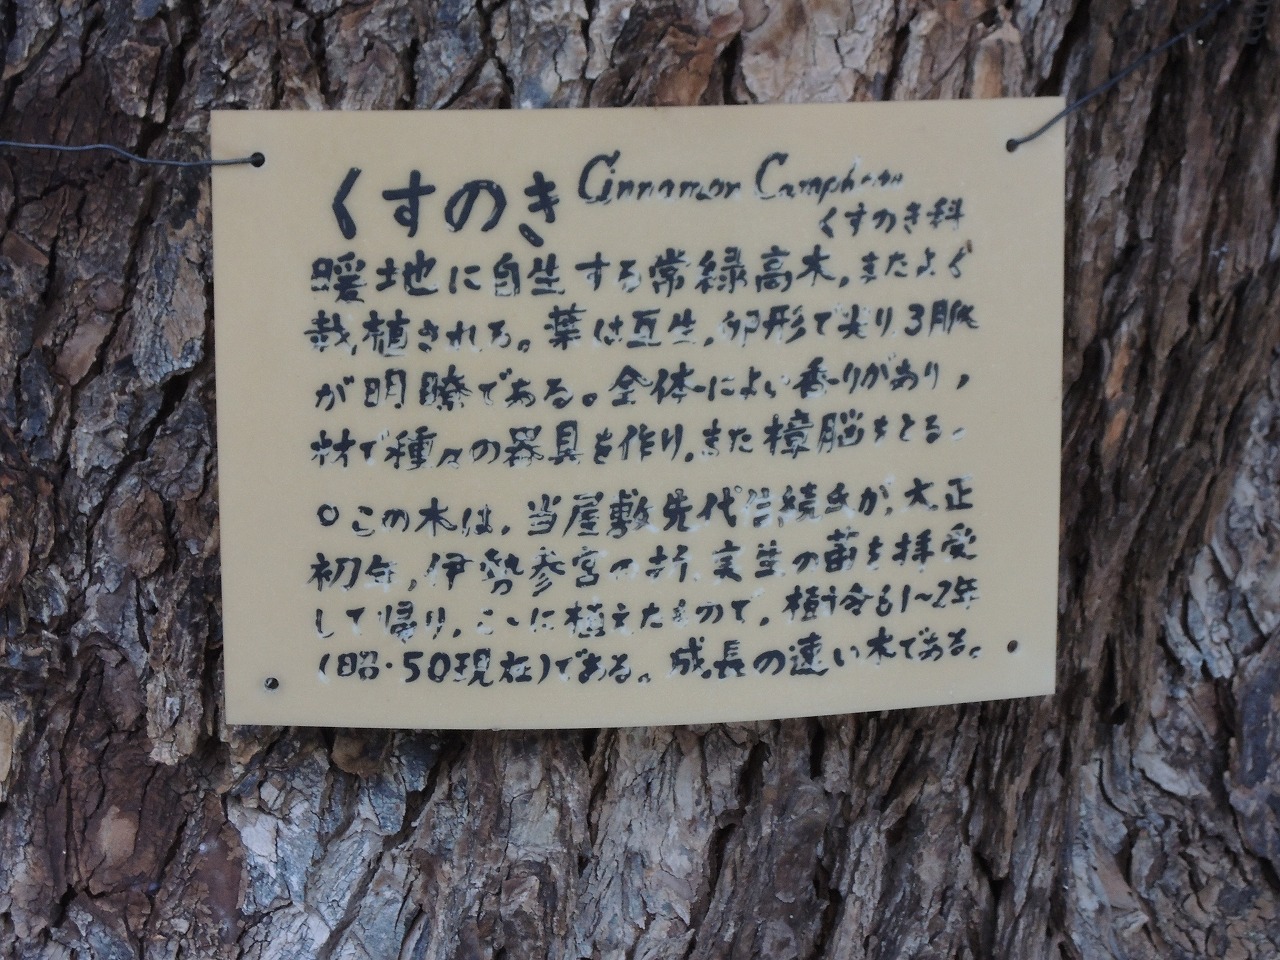 くすのき Cinnamon Camphora
くすのき科
暖地に自生する常緑高木,またよく
栽植される。葉は互生,卵形で尖り,3脈
が明瞭である。全体によい香りがあり,
材で種々の器具を作り,また樟脳をとる。
○この木は,当屋敷先代 氏が,大正
初年,伊勢参宮の折,実生の苗を拝受
して帰り,こゝに植えたもので,樹令も1~2年
(昭・50現在)である。成長の速い木である。